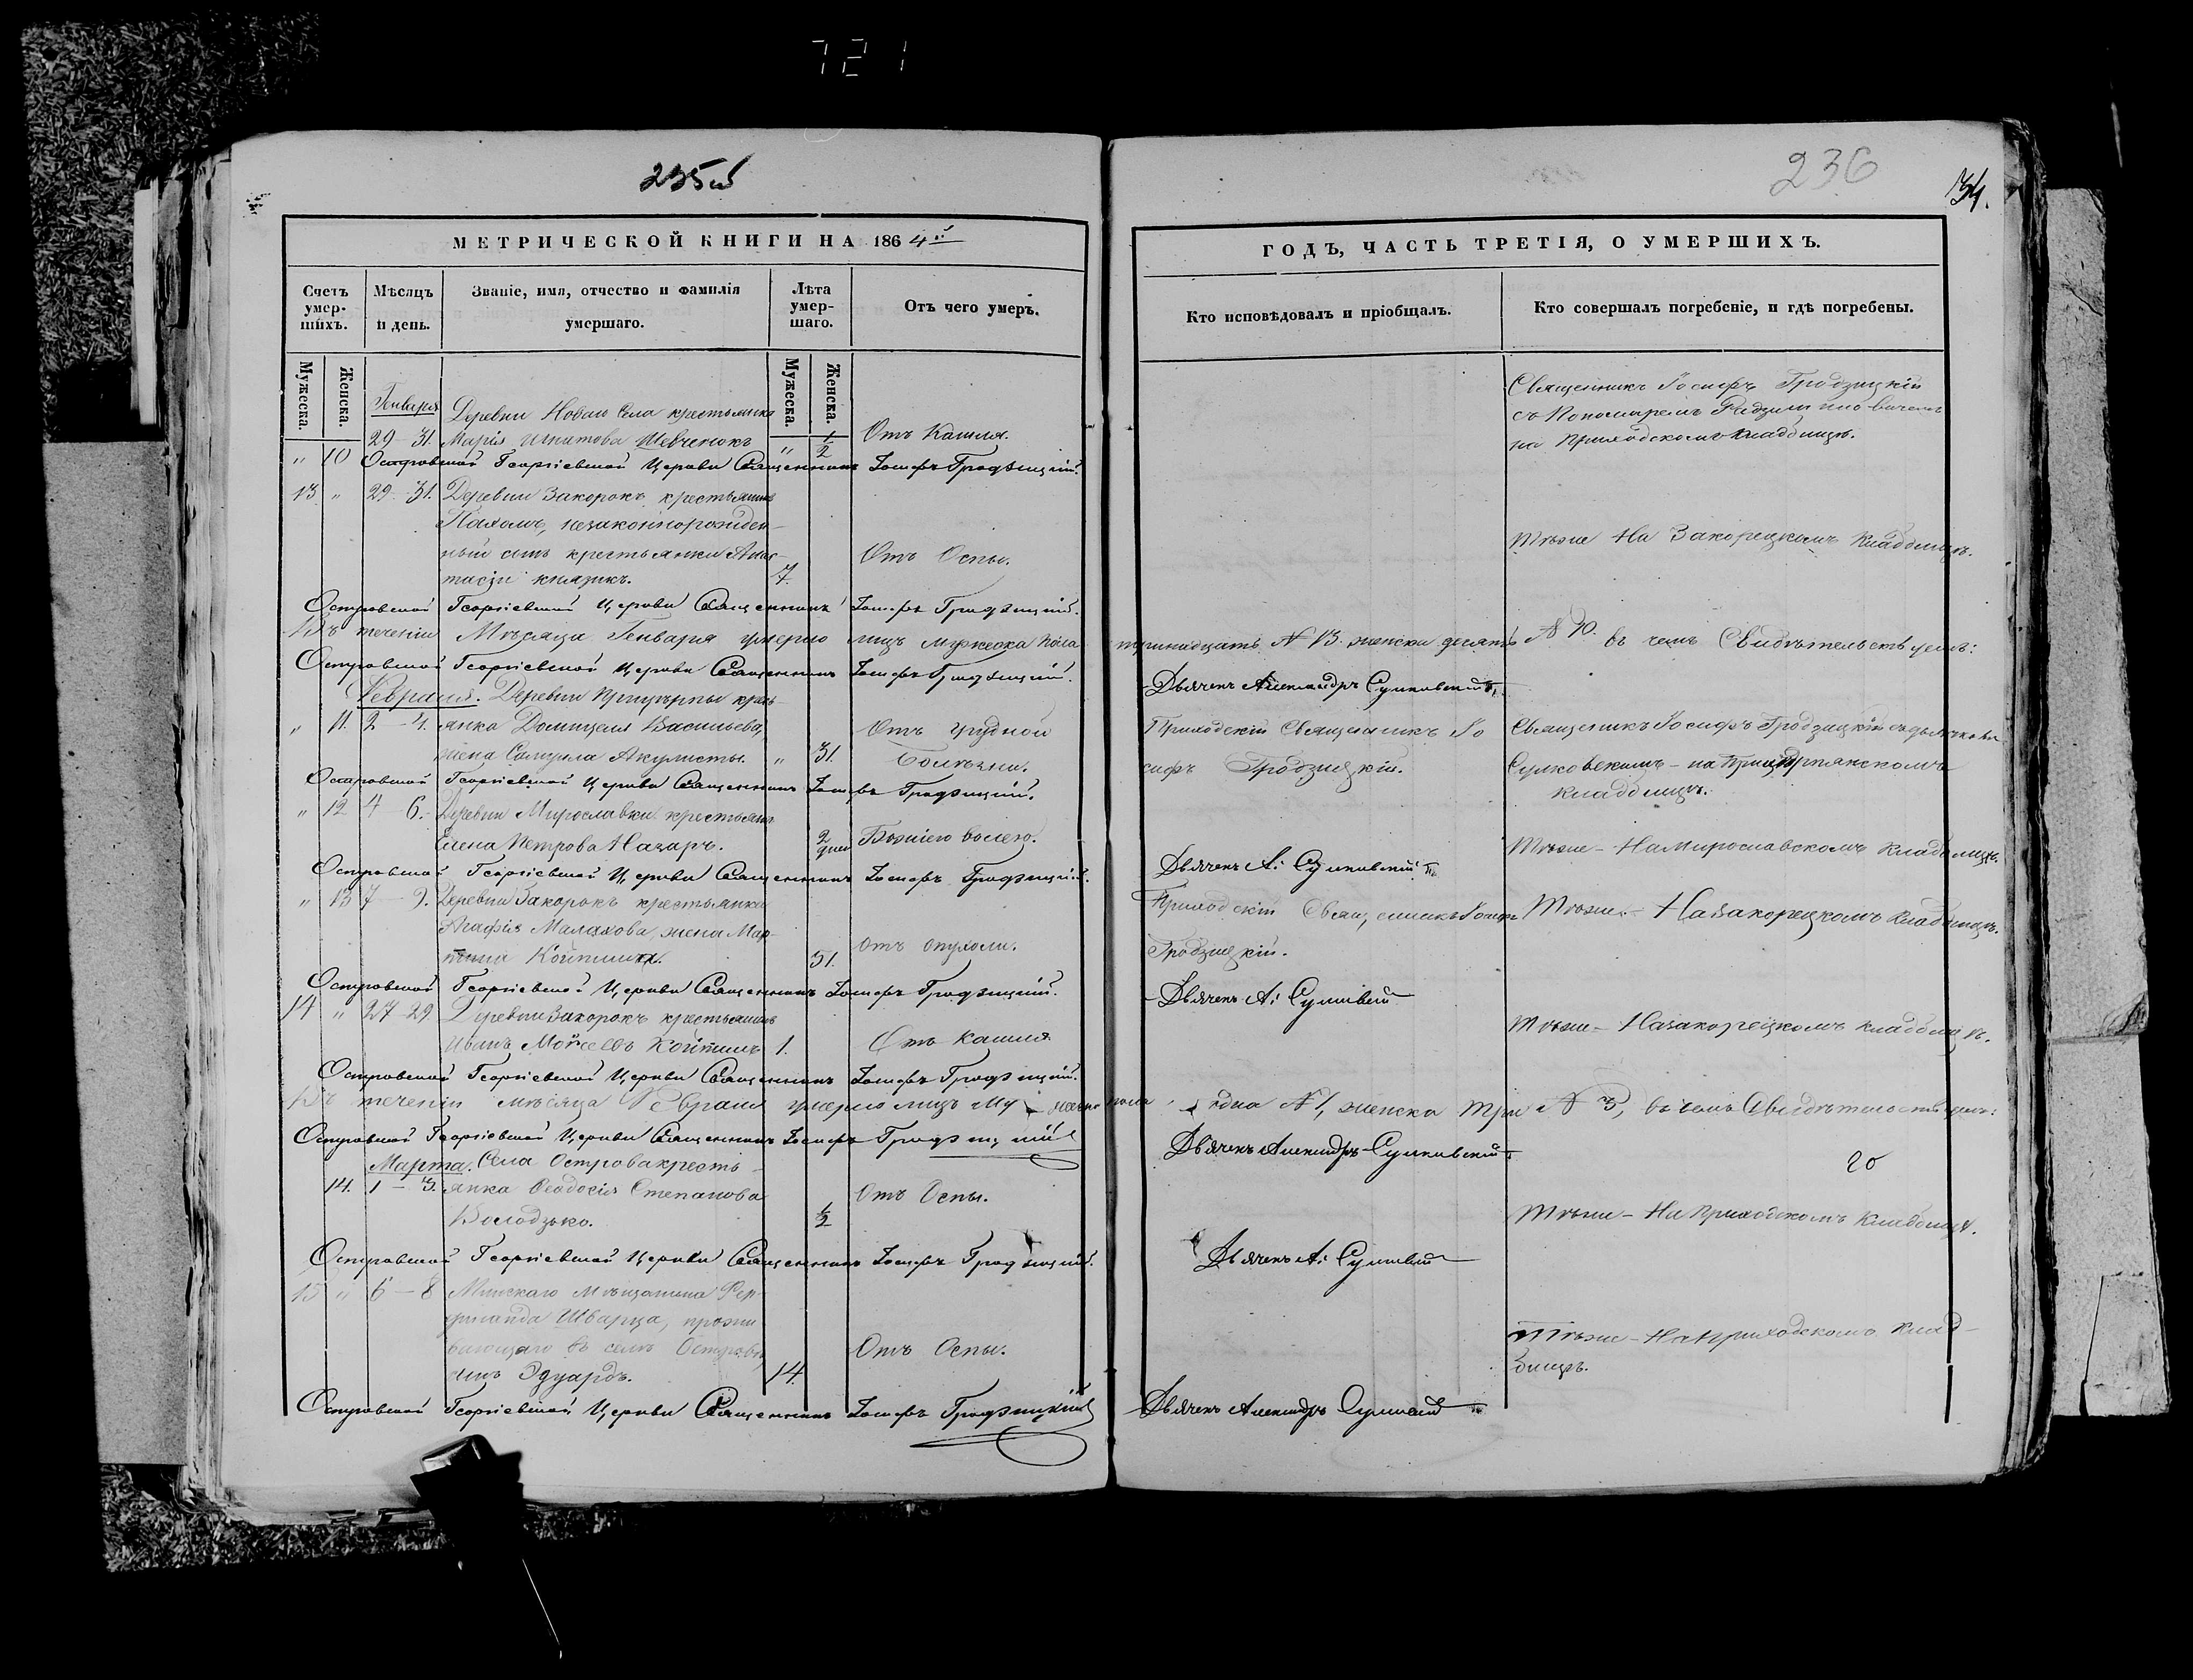 721
235об
236
34.
МЕТРИЧЕСКОЙ КНИГИ НА 1864й
ГОДЪ, ЧАСТЬ ТРЕТІЯ, О УМЕРШИХЪ.
Счетъ умер-шихъ.
Мѣсяцъ и день.
Званіе, имя, отчество и фамилія умершаго.
Лѣта умер-шаго.
Отъ чего умеръ.
Кто исповѣдовалъ и пріобщалъ.
Кто совершалъ погребеніе, и гдѣ погребены.
Мужеска.
Женска.
Мужеска.
Женска.
Генваря
Деревни Новаго Села крестьянка
" 10 29-31. Марія Шевченокъ " 1/2 Отъ Кашля.
Священникъ Іосифъ Гродзицкій
съ Пономаремъ
на Приходскомъ кладбищѣ.
Островской Георгіевской Церкви Священникъ Іосифъ Гродзицкій.
13 " 29-31. Деревни Закорокъ крестьянинъ
Пахомъ, незаконнорожден-
ный сынъ крестьянки Анас-
тасіи 7. Отъ Оспы.
Тѣже На Закорецкомъ Кладбищѣ.
Островской Георгіевской Церкви Священникъ Іосифъ Гродзицкій.
Въ теченіи Мѣсяца Генваря умерло лицъ мужеска пола тринадцать N 13. женска десять N 10. въ чемъ Свидѣтельствуемъ:
Островской Георгіевской Церкви Священникъ Іосифъ Гродзицкій.
Дьячекъ Александръ Сулковскій
Февраля. Деревни кресть
" 11. 2-4. янка Домицеля Васильева,
жена Самуила Акулисты. " 31. Отъ грудной
Болѣзни.
Приходскій Священникъ Іо
сифъ Гродзицкій.
Священникъ Іосифъ Гродзицкій съ дьячкомъ
Сулковскимъ - на
кладбищѣ.
Островской Георгіевской Церкви Священникъ Іосифъ Гродзицкій.
" 12 4-6. Деревни Мирославки крестьянка
Елена Петрова Назаръ. 2 дней Божіею волею.
Тѣже - На Мирославскомъ Кладбищѣ.
Островской Георгіевской Церкви Священникъ Іосифъ Гродзицкій.
Дьячекъ А: Сулковскій
" 13 7-9. Деревни Закорокъ крестьянка
Агафія Малахова, жена Мар-
тина 51. Отъ опухоли.
Приходскій Священникъ Іосифъ
Гродзицкій.
Тѣже - На Закорецкомъ Кладбищѣ.
Островской Георгіевской Церкви Священникъ Іосифъ Гродзицкій.
Дьячекъ А: Сулковскій
14 " 27-29 Деревни Закорокъ крестьянинъ
Иванъ 1. Отъ Кашля
Тѣже - На Закорецкомъ кладбищѣ.
Островской Георгіевской Церкви Священникъ Іосифъ Гродзицкій.
Въ теченіи мѣсяца Февраля умерло лицъ пола одна N 1, женска три N 3, въ чемъ Свидѣтельствуемъ:
Островской Георгіевской Церкви Священникъ Іосифъ Гродзицкій
Дьячекъ Александръ Сулковскій
Марта. Села Острова кресть-
14. 1-3. янка Феодосія Степанова
Володзько. 1/2 Отъ Оспы.
20
Тѣже - На Приходскомъ Кладбищѣ.
Островской Георгіевской Церкви Священникъ Іосифъ Гродзицкій.
Дьячекъ А: Сулковскій
15 " 6-8 Минскаго Мѣщанина Фер-
динанда Шварца, прожи-
вающаго въ селѣ Островѣ,
сынъ Эдуардъ. 14. Отъ Оспы.
Тѣже - На приходскомъ Клад-
бищѣ.
Островской Георгіевской Церкви Священникъ Іосифъ Гродзицкій
Дьячекъ Александръ Сулковскій